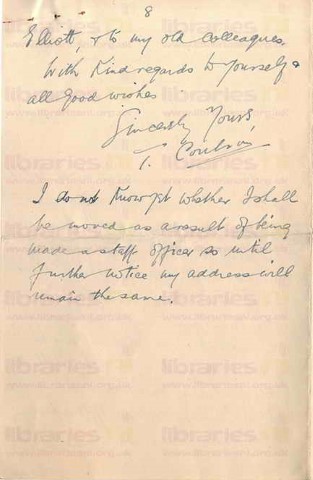 8
Elliott, & to my old colleagues.
With Kind regards to yourself &
all good wishes
Sincerely Yours,
T. Coulson
I do not know yet whether I shall
be moved as a result of being
made a staff officer so until
further notice my address will
remain the same.